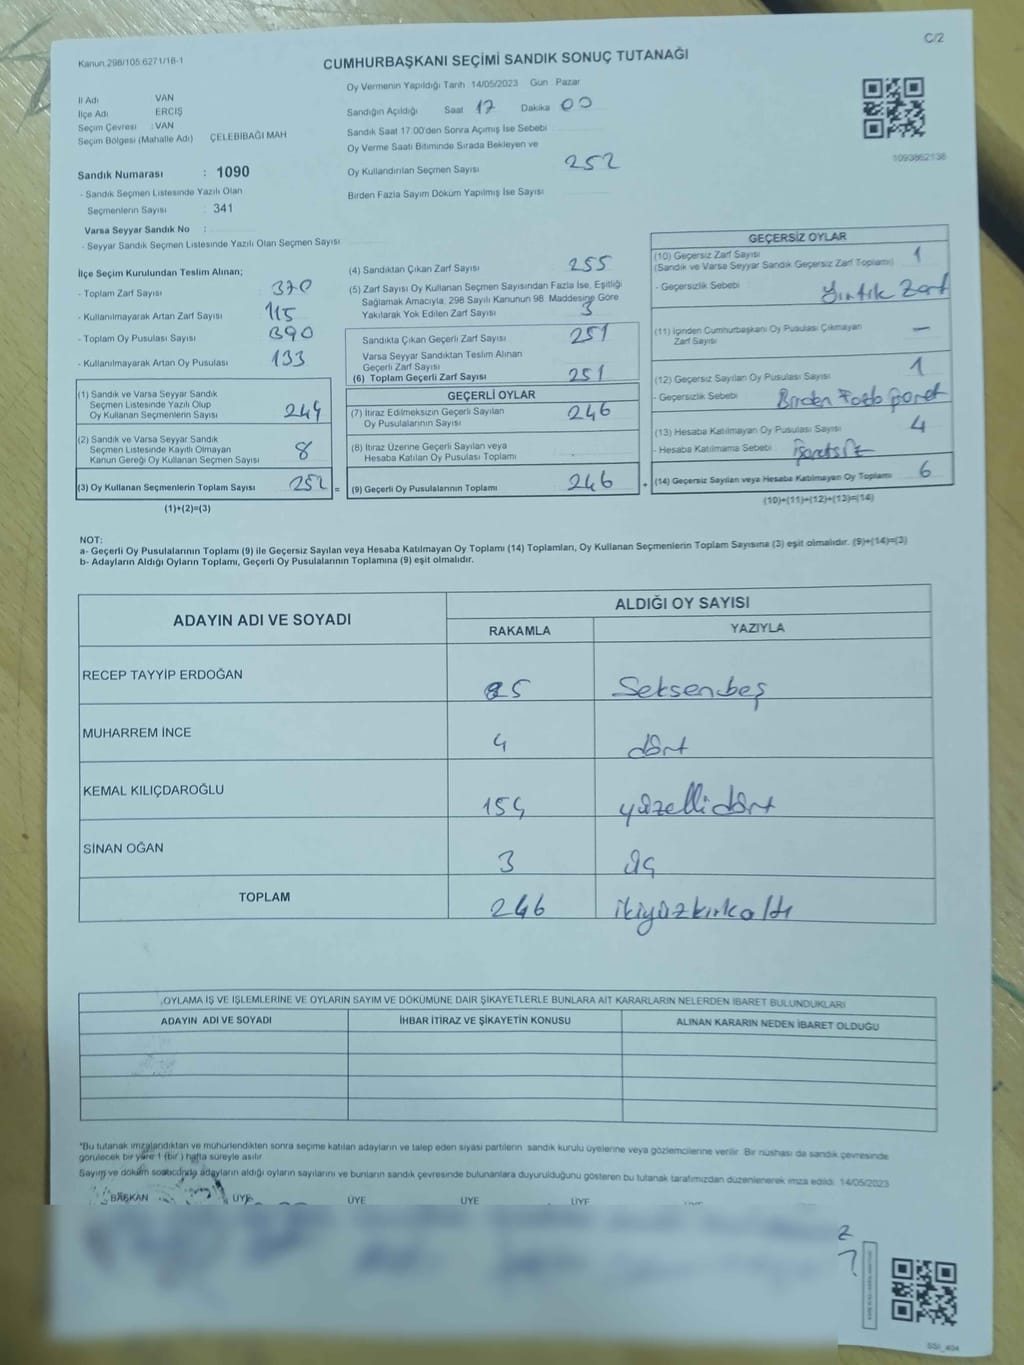 Kanun.298/105.6271/18-1
C/2
CUMHURBAŞKANI SEÇİMİ SANDIK SONUÇ TUTANAĞI
İl Adı VAN
İlçe Adı ERCİŞ
Seçim Çevresi : VAN
Seçim Bölgesi (Mahalle Adı) ÇELEBİBAĞI MAH
Oy Vermenin Yapıldığı Tarih 14/05/2023 Gün Pazar
Sandığın Açıldığı Saat 17 Dakika 00
Sandık Saat 17.00'den Sonra Açımış İse Sebebi
Oy Verme Saati Bitiminde Sırada Bekleyen ve
Oy Kullandırılan Seçmen Sayısı 252
Birden Fazla Sayım Döküm Yapılmış İse Sayısı
1093862138
Sandık Numarası : 1090
- Sandık Seçmen Listesinde Yazılı Olan
Seçmenlerin Sayısı : 341
Varsa Seyyar Sandık No :
- Seyyar Sandık Seçmen Listesinde Yazılı Olan Seçmen Sayısı
İlçe Seçim Kurulundan Teslim Alınan;
- Toplam Zarf Sayısı : 370
- Kullanılmayarak Artan Zarf Sayısı : 115
- Toplam Oy Pusulası Sayısı : 390
- Kullanılmayarak Artan Oy Pusulası : 133
(1) Sandık ve Varsa Seyyar Sandık
Seçmen Listesinde Yazılı Olup
Oy Kullanan Seçmenlerin Sayısı 244
(2) Sandık ve Varsa Seyyar Sandık
Seçmen Listesinde Kayıtlı Olmayan
Kanun Gereği Oy Kullanan Seçmen Sayısı 8
(3) Oy Kullanan Seçmenlerin Toplam Sayısı 252 =
(1)+(2)=(3)
(4) Sandıktan Çıkan Zarf Sayısı 255
(5) Zarf Sayısı Oy Kullanan Seçmen Sayısından Fazla İse, Eşitliği
Sağlamak Amacıyla, 298 Sayılı Kanunun 98. Maddesine Göre
Yakılarak Yok Edilen Zarf Sayısı 3
Sandıkta Çıkan Geçerli Zarf Sayısı 251
Varsa Seyyar Sandıktan Teslim Alınan
Geçerli Zarf Sayısı
(6) Toplam Geçerli Zarf Sayısı 251
GEÇERLİ OYLAR
(7) İtiraz Edilmeksizin Geçerli Sayılan
Oy Pusulalarının Sayısı 246
(8) İtiraz Üzerine Geçerli Sayılan veya
Hesaba Katılan Oy Pusulası Toplamı
(9) Geçerli Oy Pusulalarının Toplamı 246 +
GEÇERSİZ OYLAR
(10) Geçersiz Zarf Sayısı 1
(Sandık ve Varsa Seyyar Sandık Geçersiz Zarf Toplamı)
- Geçersizlik Sebebi Yırtık Zarf
(11) İçinden Cumhurbaşkanı Oy Pusulası Çıkmayan —
Zarf Sayısı
(12) Geçersiz Sayılan Oy Pusulası Sayısı 1
- Geçersizlik Sebebi Birden Fazla
(13) Hesaba Katılmayan Oy Pusulası Sayısı 4
- Hesaba Katılmama Sebebi İşaretsiz
(14) Geçersiz Sayılan veya Hesaba Katılmayan Oy Toplamı 6
(10)+(11)+(12)+(13)=(14)
NOT:
a- Geçerli Oy Pusulalarının Toplamı (9) ile Geçersiz Sayılan veya Hesaba Katılmayan Oy Toplamı (14) Toplamları, Oy Kullanan Seçmenlerin Toplam Sayısına (3) eşit olmalıdır. (9)+(14)=(3)
b- Adayların Aldığı Oyların Toplamı, Geçerli Oy Pusulalarının Toplamına (9) eşit olmalıdır.
ADAYIN ADI VE SOYADI
ALDIĞI OY SAYISI
RAKAMLA YAZIYLA
RECEP TAYYİP ERDOĞAN 85 Seksenbeş
MUHARREM İNCE 4 dört
KEMAL KILIÇDAROĞLU 154 yüzellidört
SİNAN OĞAN 3 üç
TOPLAM 246 ikiyüzkırkaltı
OYLAMA İŞ VE İŞLEMLERİNE VE OYLARIN SAYIM VE DÖKÜMÜNE DAİR ŞİKAYETLERLE BUNLARA AİT KARARLARIN NELERDEN İBARET BULUNDUKLARI
ADAYIN ADI VE SOYADI İHBAR İTİRAZ VE ŞİKAYETİN KONUSU ALINAN KARARIN NEDEN İBARET OLDUĞU
*Bu tutanak imzalandıktan ve mühürlendikten sonra seçime katılan adayların ve talep eden siyasi partilerin sandık kurulu üyelerine veya gözlemcilerine verilir. Bir nüshası da sandık çevresinde
görülecek bir yere 1 (bir ) hafta süreyle asılır.
Sayım ve döküm sonucunda adayların aldığı oyların sayılarını ve bunların sandık çevresinde bulunanlara duyurulduğunu gösteren bu tutanak tarafımızdan düzenlenerek imza edildi. 14/05/2023
BAŞKAN ÜYE ÜYE ÜYE ÜYE
SSI_404